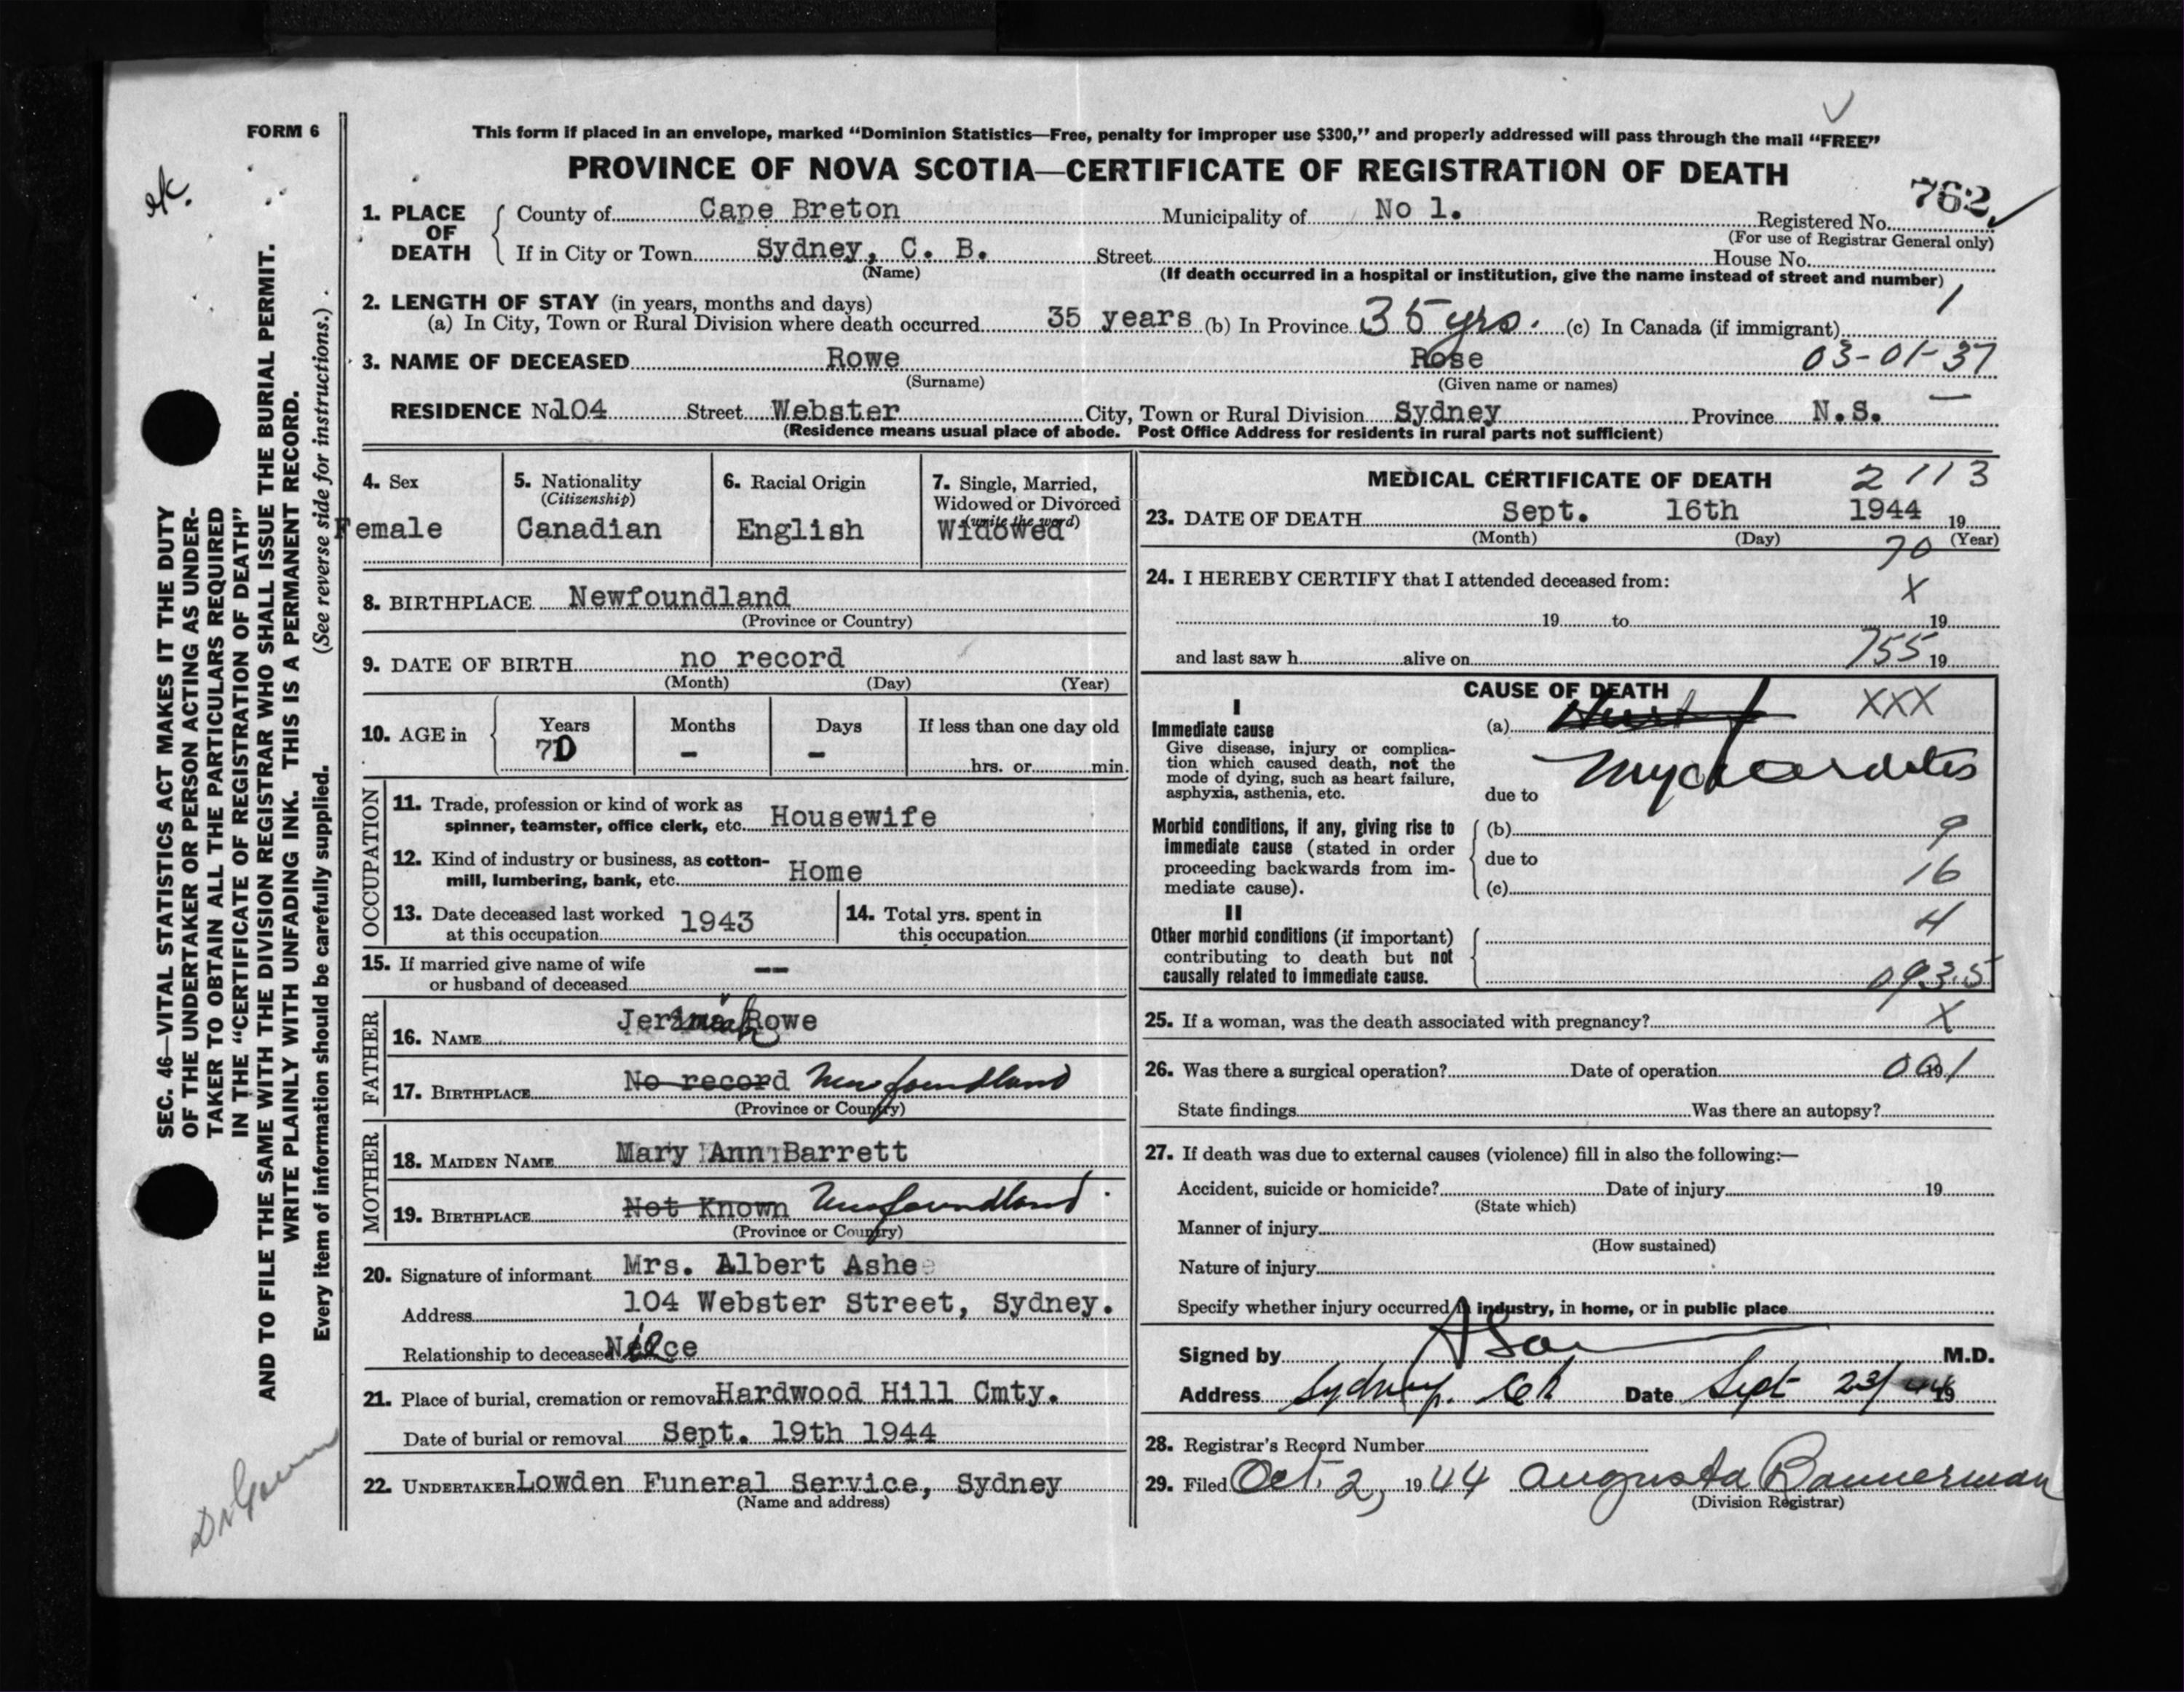 FORM 6
ok.
This form if placed in an envelope, marked “Dominion Statistics—Free, penalty for improper use $300,” and properly addressed will pass through the mail “FREE”
PROVINCE OF NOVA SCOTIA—CERTIFICATE OF REGISTRATION OF DEATH
762
1. PLACE OF DEATH
County of Cape Breton Municipality of No 1. Registered No.
(For use of Registrar General only)
If in City or Town Sydney, C. B. Street House No.
(Name) (If death occurred in a hospital or institution, give the name instead of street and number)
2. LENGTH OF STAY (in years, months and days) 1
(a) In City, Town or Rural Division where death occurred 35 years (b) In Province 35 yrs. (c) In Canada (if immigrant)
3. NAME OF DECEASED Rowe Rose 03-01-37
(Surname) (Given name or names)
RESIDENCE No 104 Street Webster City, Town or Rural Division Sydney Province N.S.
(Residence means usual place of abode. Post Office Address for residents in rural parts not sufficient)
4. Sex
Female
5. Nationality
(Citizenship)
Canadian
6. Racial Origin
English
7. Single, Married,
Widowed or Divorced
(write the word)
Widowed
8. BIRTHPLACE Newfoundland
(Province or Country)
9. DATE OF BIRTH no record
(Month) (Day) (Year)
10. AGE in
Years Months Days If less than one day old
70 - - hrs. or min.
OCCUPATION
11. Trade, profession or kind of work as
spinner, teamster, office clerk, etc. Housewife
12. Kind of industry or business, as cotton-
mill, lumbering, bank, etc. Home
13. Date deceased last worked
at this occupation 1943
14. Total yrs. spent in
this occupation
15. If married give name of wife
or husband of deceased --
FATHER
16. NAME Jeremiah Rowe
17. BIRTHPLACE No record Newfoundland
(Province or Country)
MOTHER
18. MAIDEN NAME Mary Ann Barrett
19. BIRTHPLACE Not Known Newfoundland
(Province or Country)
20. Signature of informant Mrs. Albert Ashe
Address 104 Webster Street, Sydney.
Relationship to deceased Niece
21. Place of burial, cremation or removal Hardwood Hill Cmty.
Date of burial or removal Sept. 19th 1944
22. UNDERTAKER Lowden Funeral Service, Sydney
(Name and address)
MEDICAL CERTIFICATE OF DEATH 2113
23. DATE OF DEATH Sept. 16th 1944 19
(Month) (Day) (Year)
70
24. I HEREBY CERTIFY that I attended deceased from:
X
19 to 19
and last saw h alive on 755 19
CAUSE OF DEATH
I
Immediate cause
Give disease, injury or complica-
tion which caused death, not the
mode of dying, such as heart failure,
asphyxia, asthenia, etc.
(a) XXX
Myocarditis
due to
Morbid conditions, if any, giving rise to
immediate cause (stated in order
proceeding backwards from im-
mediate cause).
(b) 9
due to
16
(c)
II
Other morbid conditions (if important)
contributing to death but not
causally related to immediate cause.
4
093.5
25. If a woman, was the death associated with pregnancy? X
26. Was there a surgical operation? Date of operation 19 001
State findings Was there an autopsy?
27. If death was due to external causes (violence) fill in also the following:—
Accident, suicide or homicide? Date of injury 19
(State which)
Manner of injury
(How sustained)
Nature of injury
Specify whether injury occurred in industry, in home, or in public place
Signed by M.D.
Address Sydney. Date Sept 23/44 19
28. Registrar's Record Number
29. Filed Oct. 2, 1944 Augusta Bannerman
(Division Registrar)
SEC. 46—VITAL STATISTICS ACT MAKES IT THE DUTY
OF THE UNDERTAKER OR PERSON ACTING AS UNDER-
TAKER TO OBTAIN ALL THE PARTICULARS REQUIRED
IN THE “CERTIFICATE OF REGISTRATION OF DEATH”
AND TO FILE THE SAME WITH THE DIVISION REGISTRAR WHO SHALL ISSUE THE BURIAL PERMIT.
WRITE PLAINLY WITH UNFADING INK. THIS IS A PERMANENT RECORD.
Every item of information should be carefully supplied. (See reverse side for instructions.)